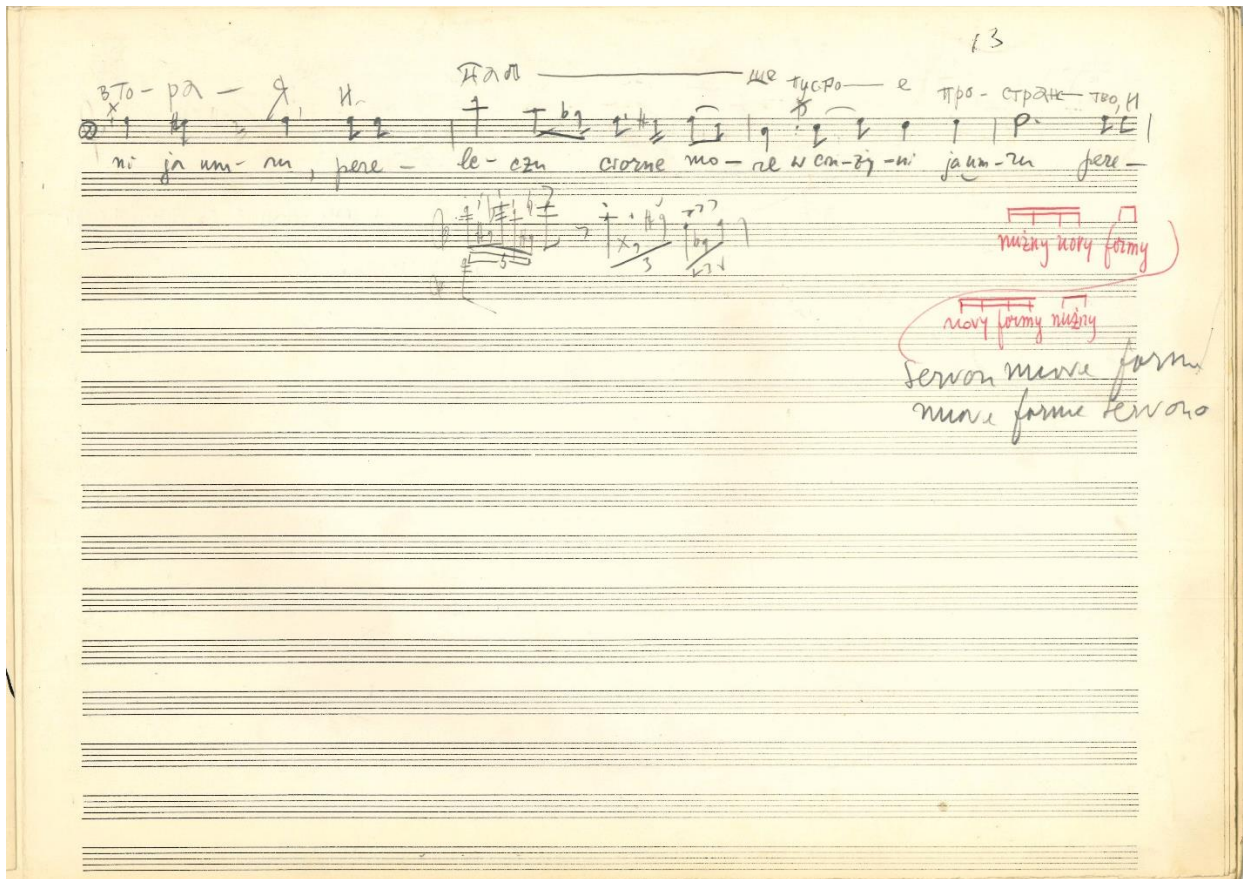 13
вто - ра - я, и
ще пусто - е про - стран - тво, и
ni ja um - ru, pere - le - czu czorne mo - re w con - zy - ni ja um - ru pere -
5
3
nużny novy formy
novy formy nużny
servon nuove forme
nuove forme servono